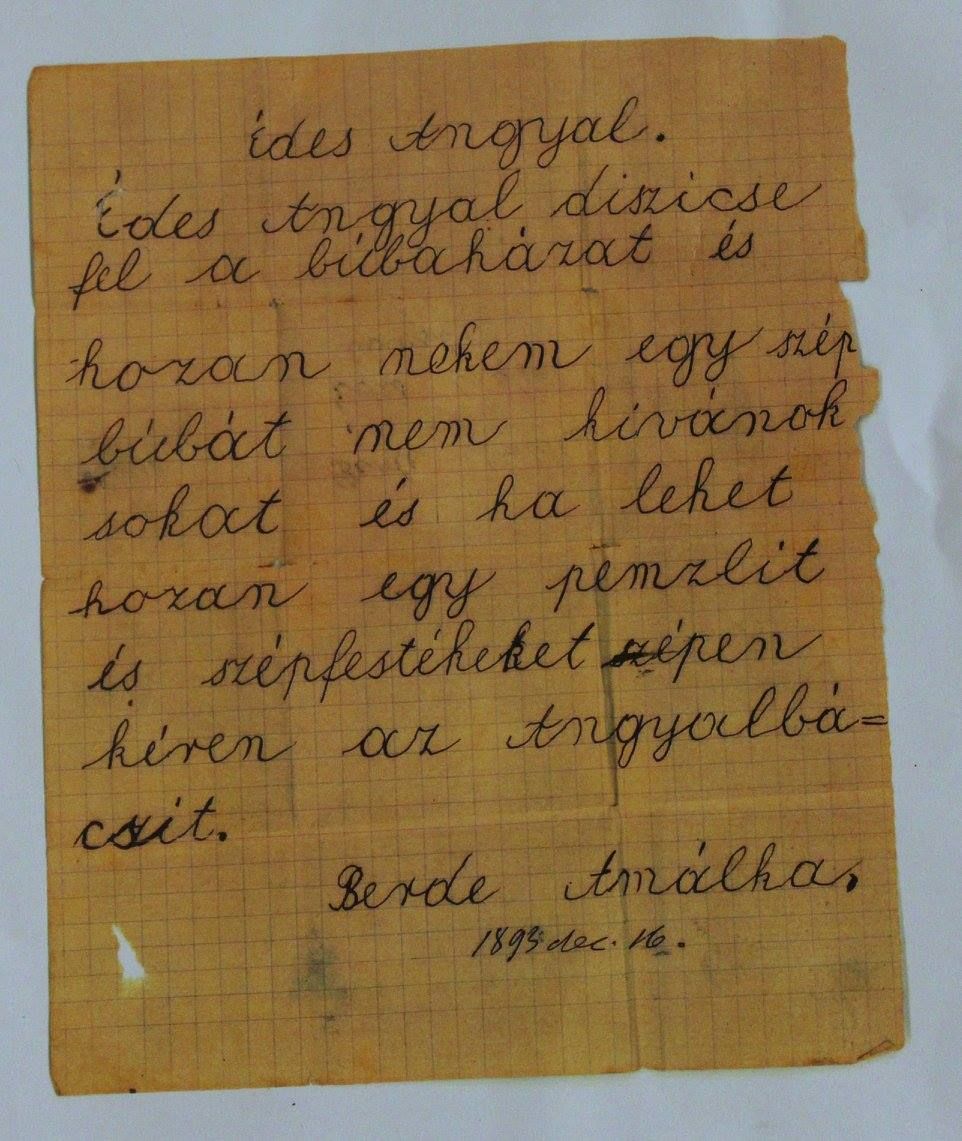 Édes Angyal.
Édes Angyal diszicse
fel a búbaházat és
hozan nekem egy szép
búbát nem kivánok
sokat és ha lehet
hozan egy pemzlit
és szépfestékeket szépen
kéren az Angyalbá=
cszit.
Berde Amálka.
1893 dec. 16.